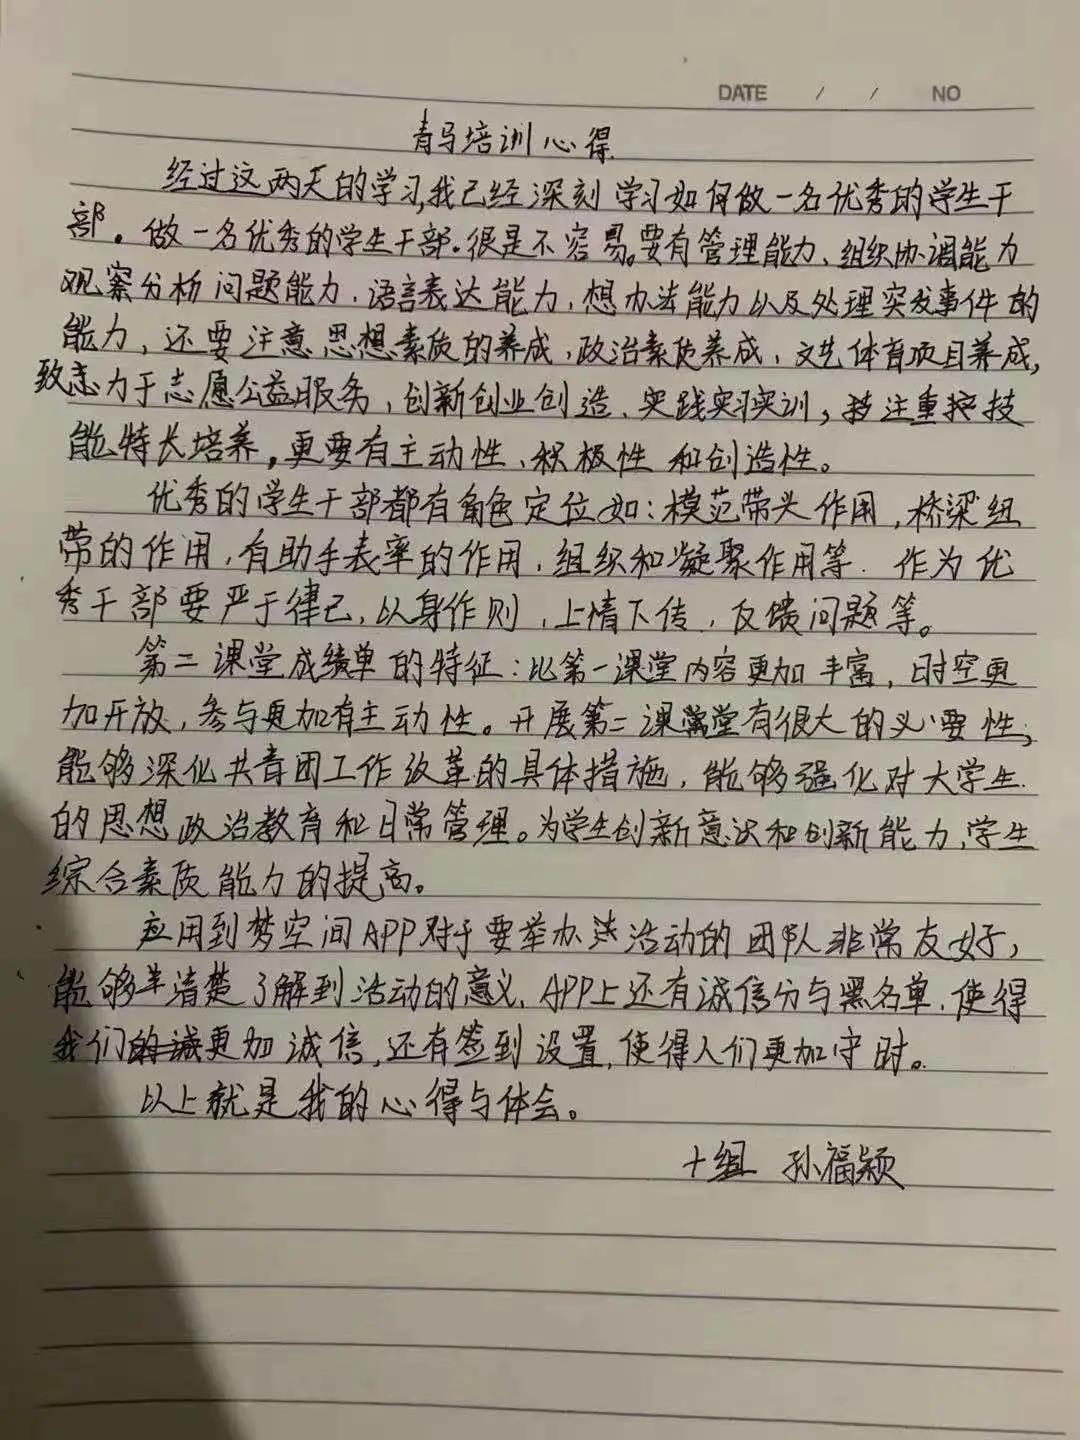 DATE / / NO
青马培训心得
经过这两天的学习,我已经深刻学习如何做一名优秀的学生干
部。做一名优秀的学生干部.很是不容易。要有管理能力、组织协调能力
观察分析问题能力,语言表达能力,想办法能力以及处理突发事件的
能力,还要注意思想素质的养成,政治素质养成,文艺体育项目养成,
致志力于志愿公益服务,创新创业创造、实践实习实训,注重技
能特长培养,更要有主动性、积极性和创造性。
优秀的学生干部都有角色定位如:模范带头作用,桥梁纽
带的作用,有助手表率的作用,组织和凝聚作用等.作为优
秀干部要严于律己,以身作则,上情下传,反馈问题等。
第二课堂成绩单的特征:比第一课堂内容更加丰富,时空更
加开放,参与更加有主动性。开展第二课堂有很大的必要性,
能够深化共青团工作改革的具体措施,能够强化对大学生
的思想政治教育和日常管理。为学生创新意识和创新能力,学生
综合素质能力的提高。
应用到梦空间APP对于要举办活动的团队非常友好,
能够清楚了解到活动的意义,APP上还有诚信分与黑名单,使得
我们更加诚信,还有签到设置,使得人们更加守时。
以上就是我的心得与体会。
十组 孙福颖